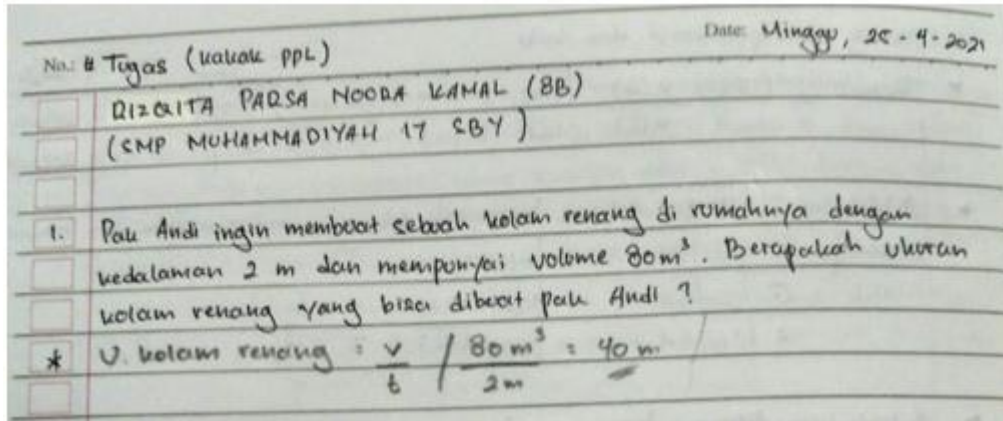 Date: Minggu, 25-4-2021
No.: # Tugas (kakak PPL)
RIZQITA PARSA NOORA KAMAL (8B)
(SMP MUHAMMADIYAH 17 SBY)
1. Pak Andi ingin membuat sebuah kolam renang di rumahnya dengan
kedalaman 2 m dan mempunyai volume 80 m³. Berapakah ukuran
kolam renang yang bisa dibuat pak Andi ?
* U. kolam renang : v/t / 80 m³/2 m = 40 m